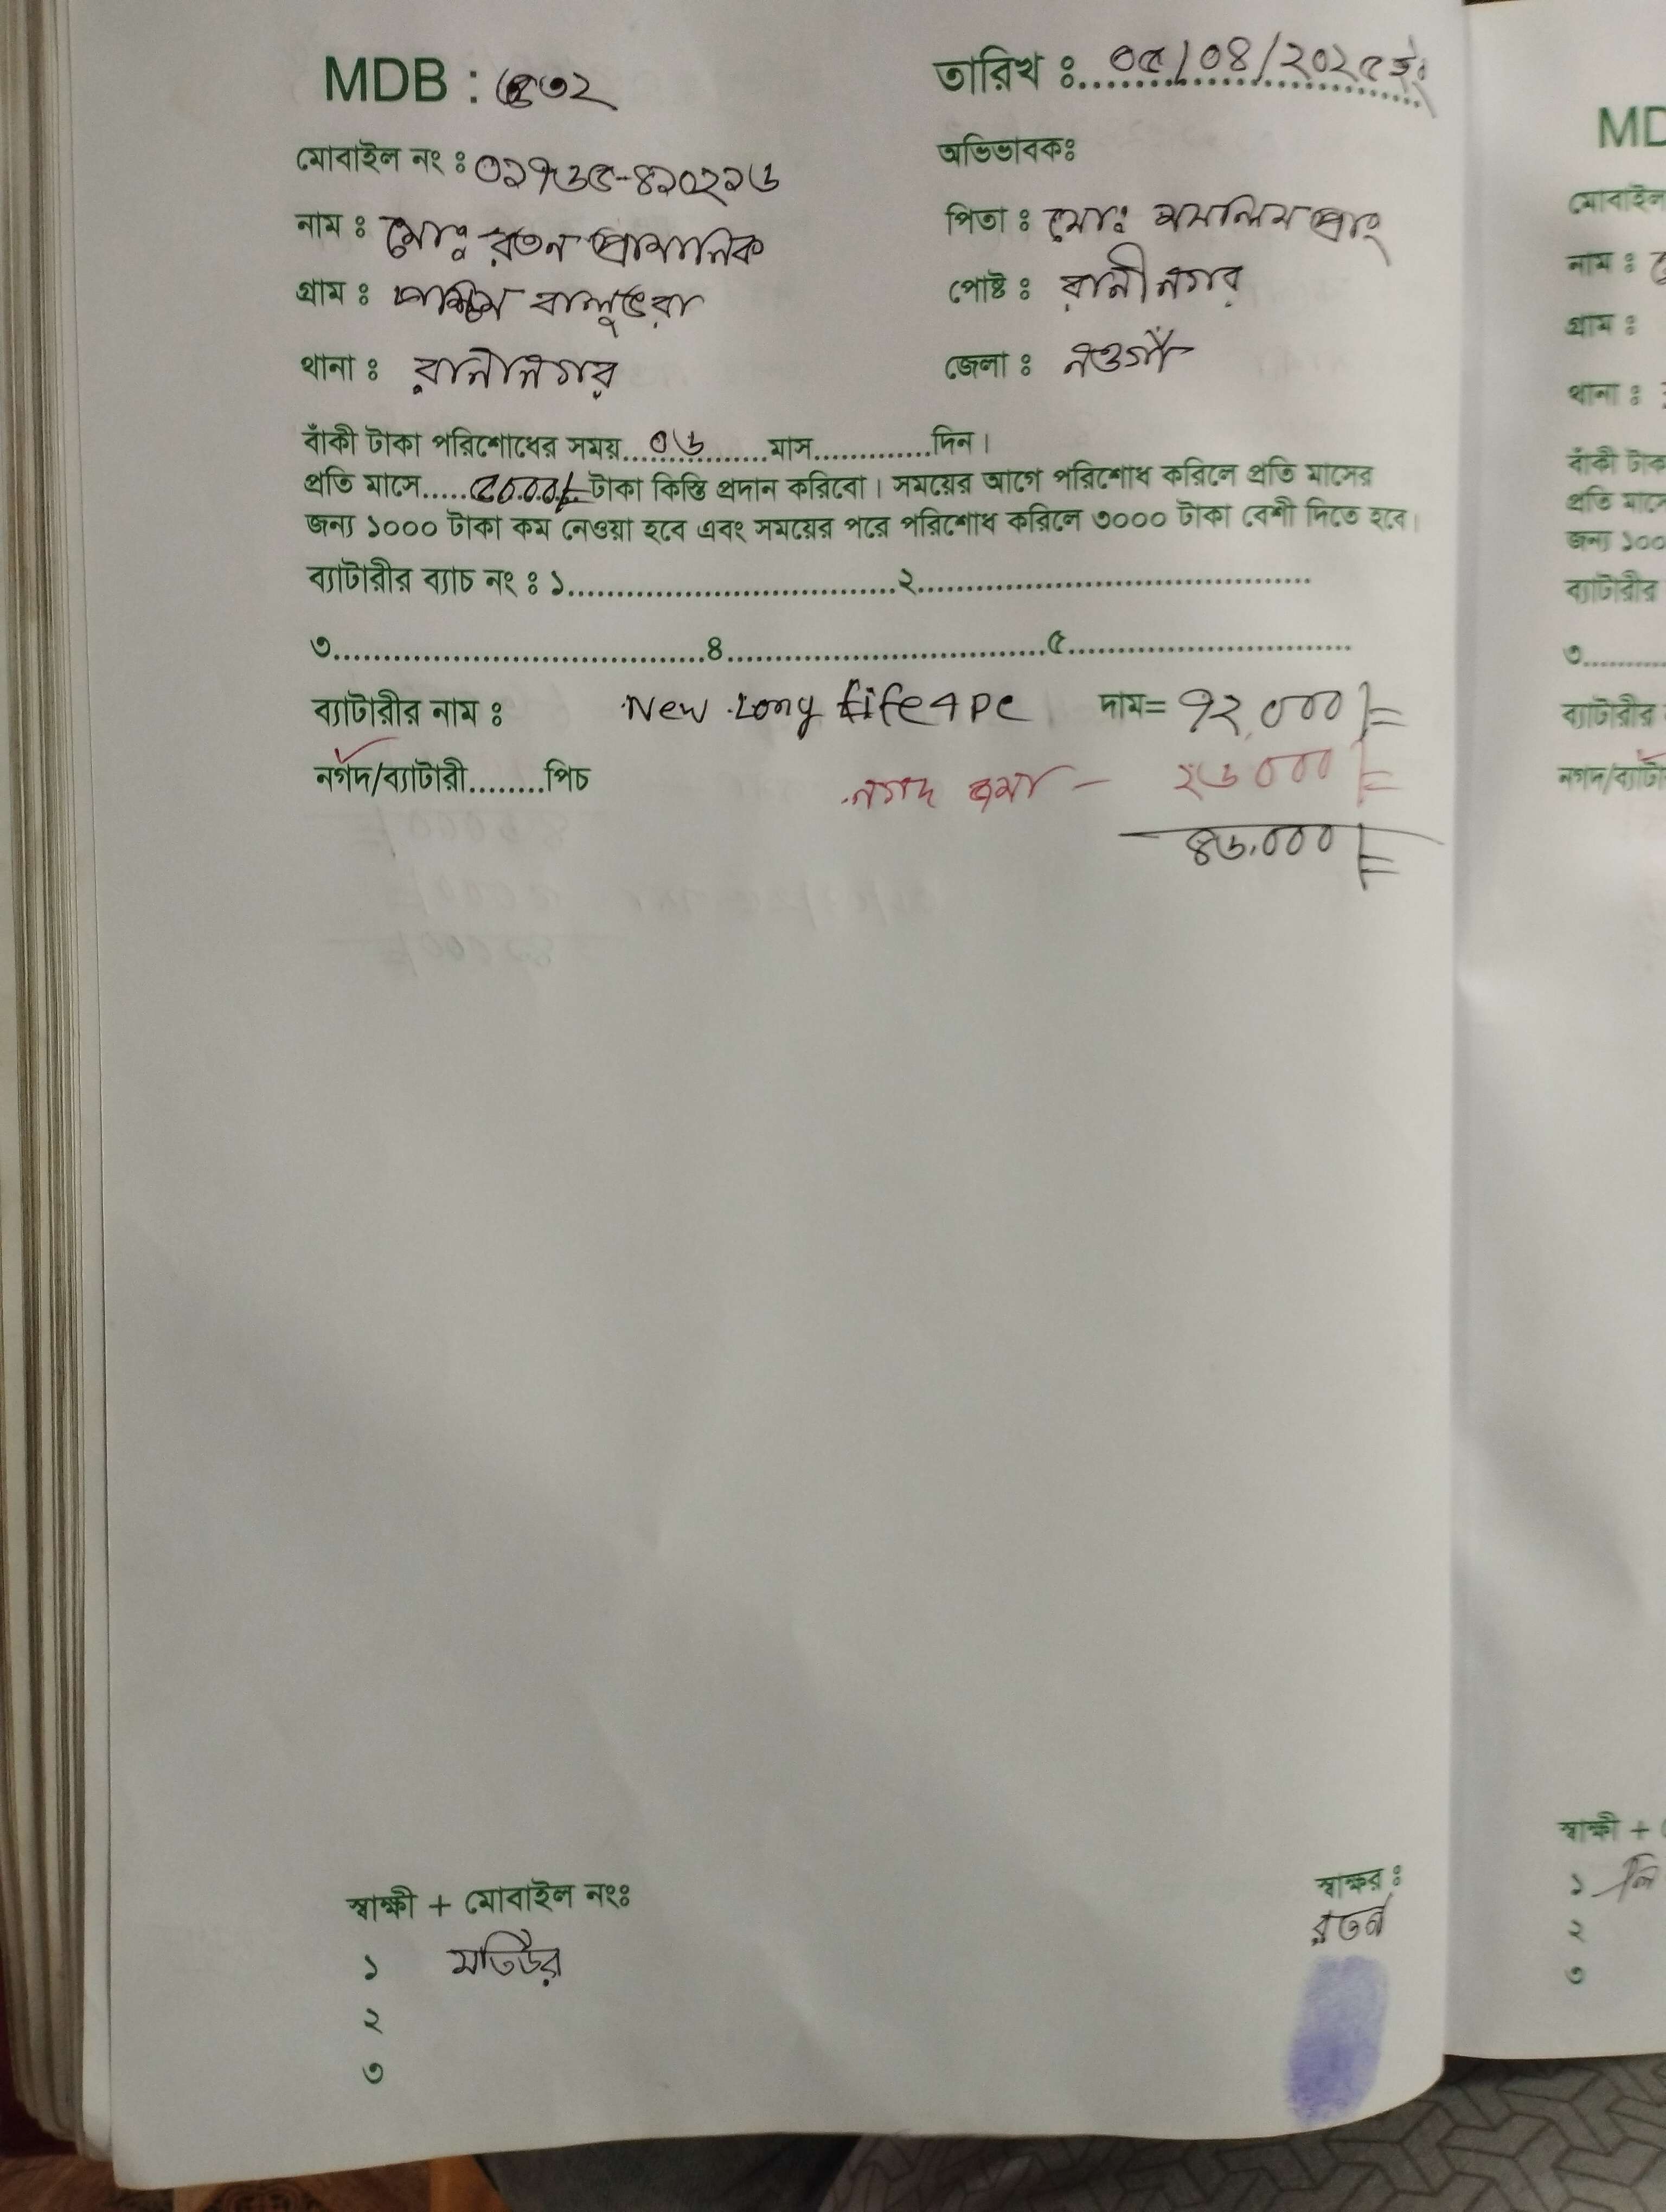 MDB : ৫৩২
তারিখ ঃ ০৫/০৪/২০২৫ ইং
মোবাইল নং ঃ ০১৭৬৫-৪১০২১৬
অভিভাবকঃ
নাম ঃ মোঃ রতন প্রামানিক
পিতা ঃ মোঃ মসলিম প্রাং
গ্রাম ঃ পশ্চিম বালুভরা
পোষ্ট ঃ রানীনগর
থানা ঃ রানীনগর
জেলা ঃ নওগাঁ
বাঁকী টাকা পরিশোধের সময়...০৬...মাস............দিন।
প্রতি মাসে.....৫০০০/=টাকা কিস্তি প্রদান করিবো। সময়ের আগে পরিশোধ করিলে প্রতি মাসের
জন্য ১০০০ টাকা কম নেওয়া হবে এবং সময়ের পরে পরিশোধ করিলে ৩০০০ টাকা বেশী দিতে হবে।
ব্যাটারীর ব্যাচ নং ঃ ১..................................২........................................
৩......................................৪................................৫............................
ব্যাটারীর নাম ঃ New Long Life 4 PC দাম= ৭২,০০০/=
নগদ/ব্যাটারী........পিচ নগদ জমা — ২৬০০০/=
৪৬,০০০/=
স্বাক্ষী + মোবাইল নংঃ
স্বাক্ষর ঃ
রতন
১ মতিউর
২
৩
MD
মোবাইল
নাম ঃ
গ্রাম ঃ
থানা ঃ
বাঁকী টাক
প্রতি মাসে
জন্য ১০০
ব্যাটারীর
৩.........
ব্যাটারীর
নগদ/ব্যাটা
স্বাক্ষী +
১
২
৩